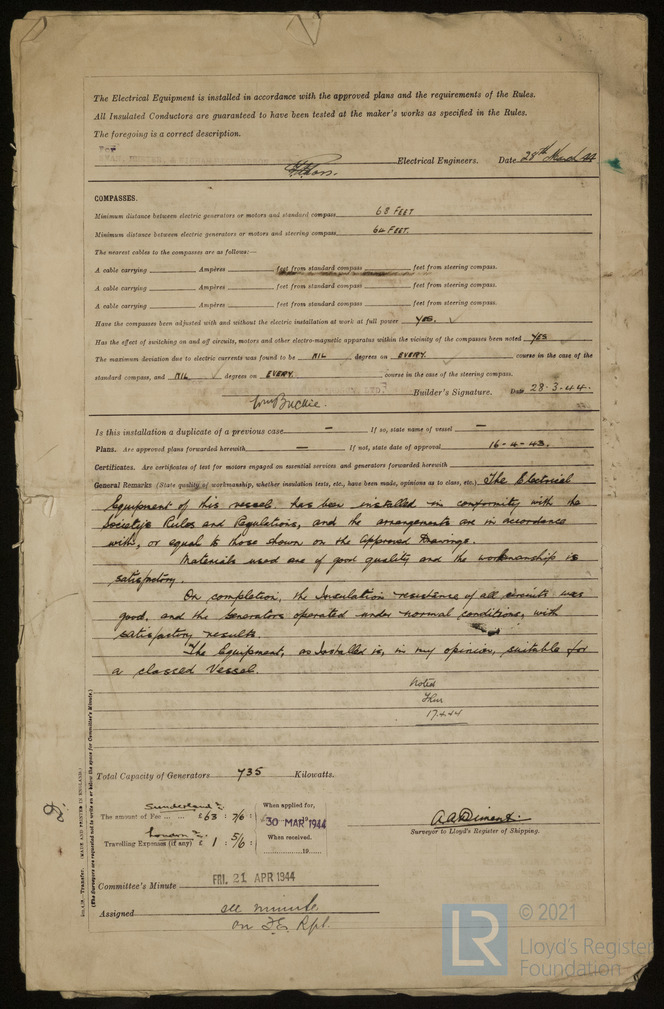 The Electrical Equipment is installed in accordance with the approved plans and the requirements of the Rules.
All Insulated Conductors are guaranteed to have been tested at the maker's works as specified in the Rules.
The foregoing is a correct description.
Electrical Engineers. Date 28th March 44
COMPASSES.
Minimum distance between electric generators or motors and standard compass 68 FEET
Minimum distance between electric generators or motors and steering compass 64 FEET.
The nearest cables to the compasses are as follows:—
A cable carrying Ampères feet from standard compass feet from steering compass.
A cable carrying Ampères feet from standard compass feet from steering compass.
A cable carrying Ampères feet from standard compass feet from steering compass.
Have the compasses been adjusted with and without the electric installation at work at full power YES. ✓
Has the effect of switching on and off circuits, motors and other electro-magnetic apparatus within the vicinity of the compasses been noted YES
The maximum deviation due to electric currents was found to be NIL degrees on EVERY. course in the case of the
standard compass, and NIL degrees on EVERY. course in the case of the steering compass.
LTD. Builder's Signature. Date 28.3.44.
Is this installation a duplicate of a previous case — If so, state name of vessel —
Plans. Are approved plans forwarded herewith — If not, state date of approval 16-4-43.
Certificates. Are certificates of test for motors engaged on essential services and generators forwarded herewith
General Remarks (State quality of workmanship, whether insulation tests, etc., have been made, opinions as to class, etc.) The Electrical
Equipment of this vessel has been installed in conformity with the
Society's Rules and Regulations, and the arrangements are in accordance
with, or equal to those shown on the Approved Drawings.
Materials used are of good quality and the workmanship is
satisfactory.
On completion, the Insulation resistance of all circuits was
good, and the Generators operated under normal conditions, with
satisfactory results.
The Equipment, as Installed is, in my opinion, suitable for
a classed Vessel.
Noted
17.4.44
Total Capacity of Generators 735 Kilowatts.
Sunderland
The amount of Fee ... ... £63 : 7/6 :
London
Travelling Expenses (if any) £ 1 : 5/6 :
When applied for,
30 MAR 1944
When received.
19
A.A. Diment.
Surveyor to Lloyd's Register of Shipping.
Committee's Minute FRI. 21 APR 1944
Assigned see minute
on F.E. Rpt.
Transfer. (MADE AND PRINTED IN ENGLAND.)
(The Surveyors are requested not to write on or below the space for Committee's Minute.)
LR
© 2021
Lloyd's Register
Foundation